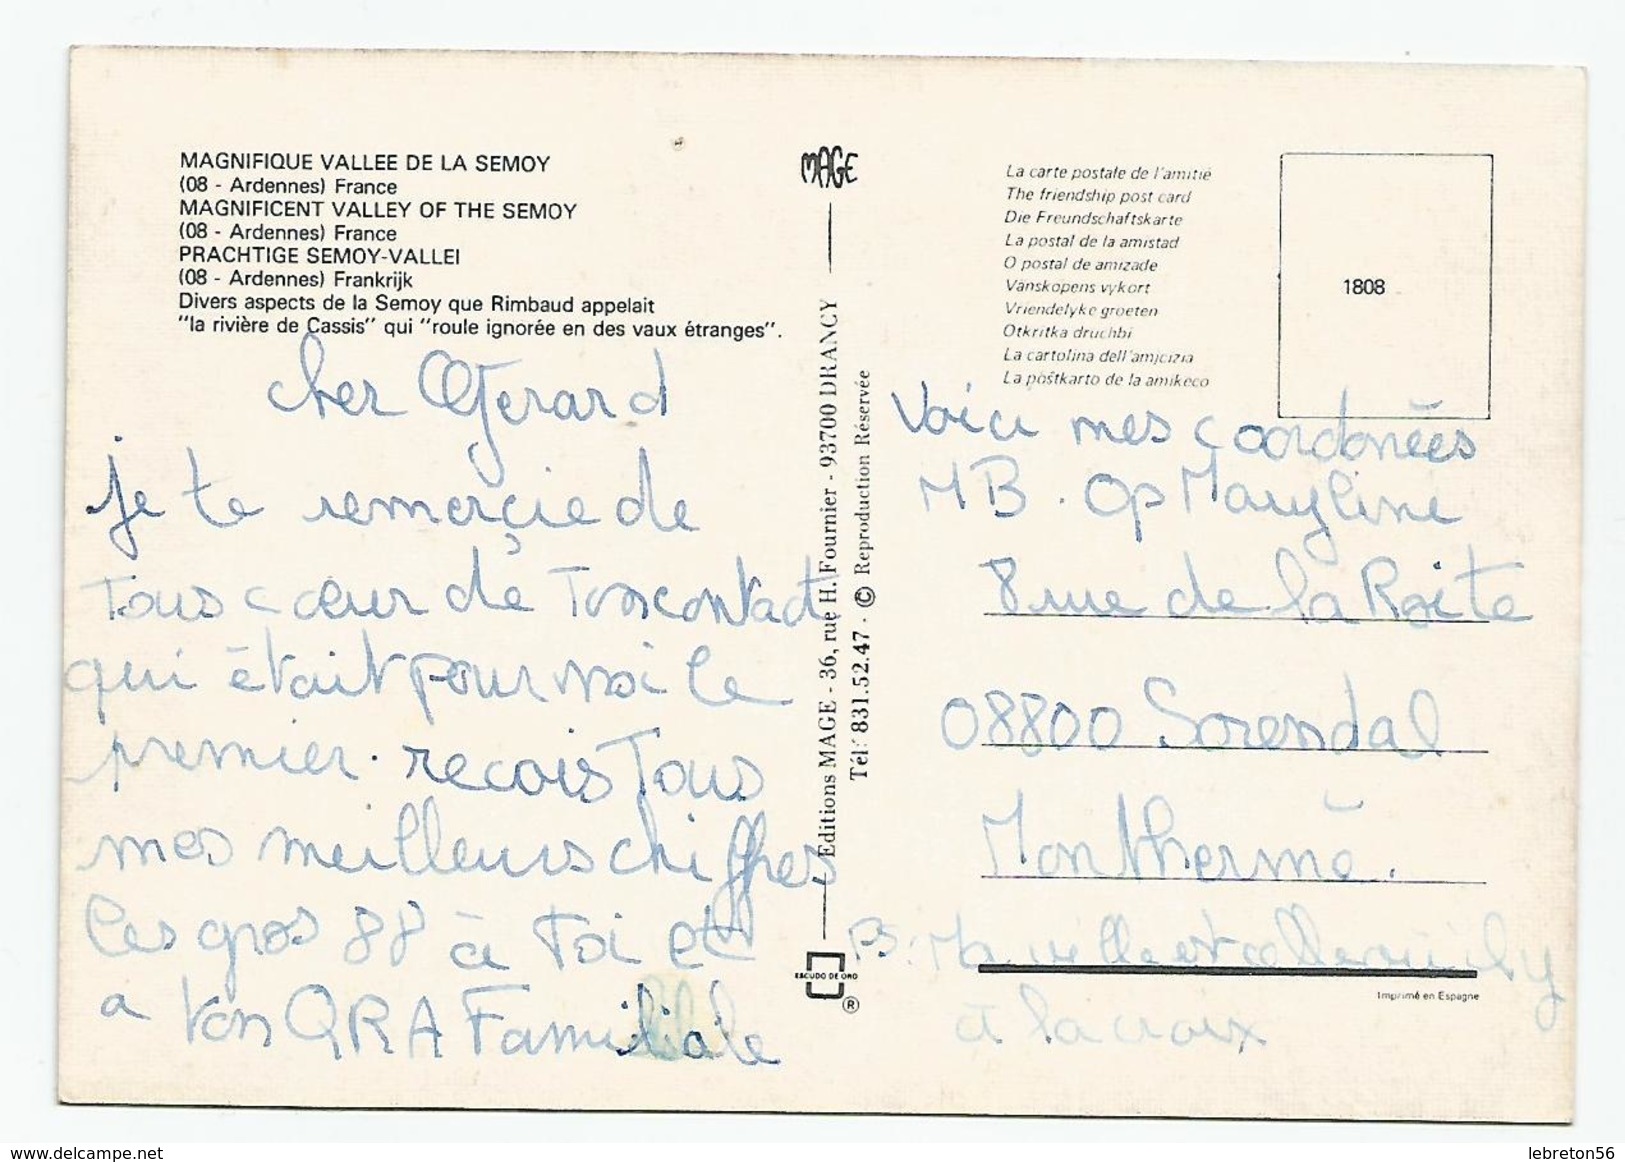 MAGNIFIQUE VALLEE DE LA SEMOY
(08 - Ardennes) France
MAGNIFICENT VALLEY OF THE SEMOY
(08 - Ardennes) France
PRACHTIGE SEMOY-VALLEI
(08 - Ardennes) Frankrijk
Divers aspects de la Semoy que Rimbaud appelait
"la rivière de Cassis" qui "roule ignorée en des vaux étranges".
cher Gerard
je te remerçie de
Tous cœur de Ton contact
qui était pour moi le
premier. recois Tous
mes meilleurs chiffres
les gros 88 à Toi et
a ton QRA Familiale
MAGE
Editions MAGE - 36, rue H. Fournier - 93700 DRANCY
Tél: 831.52.47 - © Reproduction Réservée
ESCUDO DE ORO
®
La carte postale de l'amitié
The friendship post card
Die Freundschaftskarte
La postal de la amistad
O postal de amizade
Vänskapens vykort
Vriendelyke groeten
Otkritka druchbi
La cartolina dell'amicizia
La poŝtkarto de la amikeco
1808
Voici mes coordonées
MB. Op Maryline
8 rue de la Roite
08800 Sorendal
Monthermé.
Ma ville est
à la croix
Imprimé en Espagne
delcampe.net
lebreton56